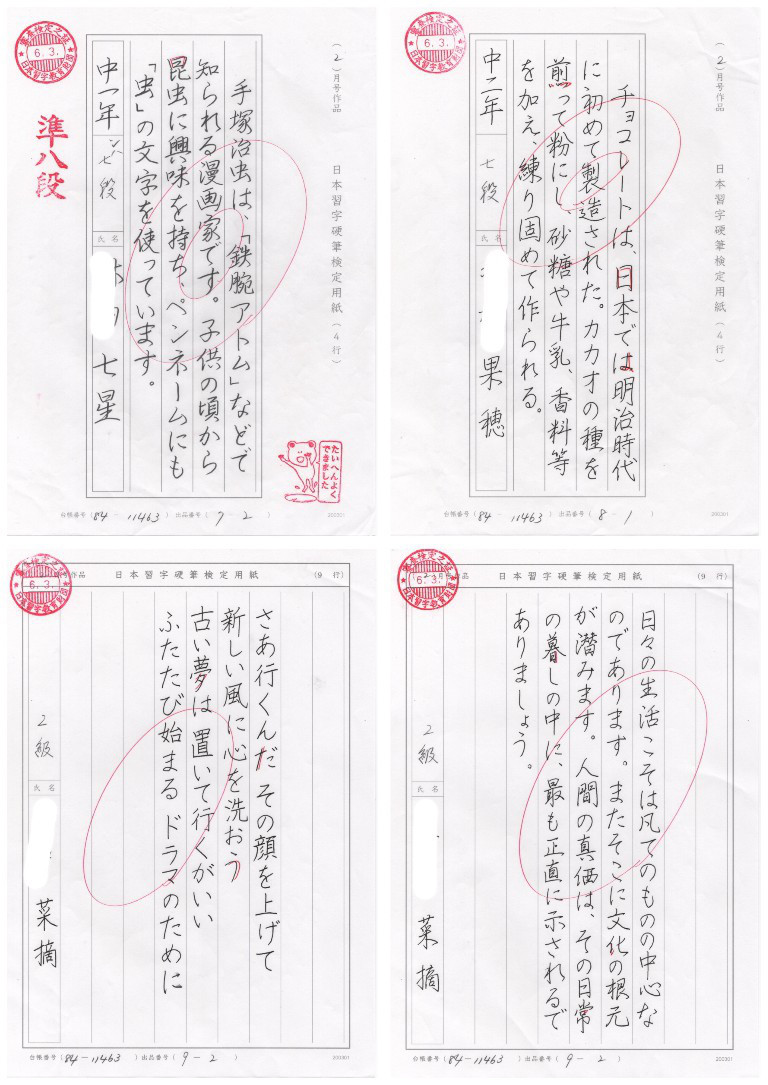 書奉検定之証
6.3.
日本習字教育財団
準八段
（２）月号作品
日本習字硬筆検定用紙（4行）
手塚治虫は、「鉄腕アトム」などで
知られる漫画家です。子供の頃から
昆虫に興味を持ち、ペンネームにも
「虫」の文字を使っています。
中一年
七段
氏名
七星
たいへんよく
できました
台帳番号（84-11463）出品番号（9-2）
200301
6.3.
日本習字教育財団
（２）月号作品
日本習字硬筆検定用紙（4行）
チョコレートは、日本では明治時代
に初めて製造された。カカオの種を
煎って粉にし、砂糖や牛乳、香料等
を加え、練り固めて作られる。
中二年
七段
氏名
果穂
台帳番号（84-11463）出品番号（8-1）
200301
6.3.
日本習字教育財団
作品
日本習字硬筆検定用紙
（9行）
さあ行くんだ その顔を上げて
新しい風に心を洗おう
古い夢は置いて行くがいい
ふたたび始まる ドラマのために
2級
氏名
菜摘
台帳番号（84-11463）出品番号（9-2）
200301
6.3.
日本習字教育財団
作品
日本習字硬筆検定用紙
（9行）
日々の生活こそは凡てのものの中心な
のであります。またそこに文化の根元
が潜みます。人間の真価は、その日常
の暮しの中に、最も正直に示されるで
ありましょう。
2級
氏名
菜摘
台帳番号（84-11463）出品番号（9-2）
200301